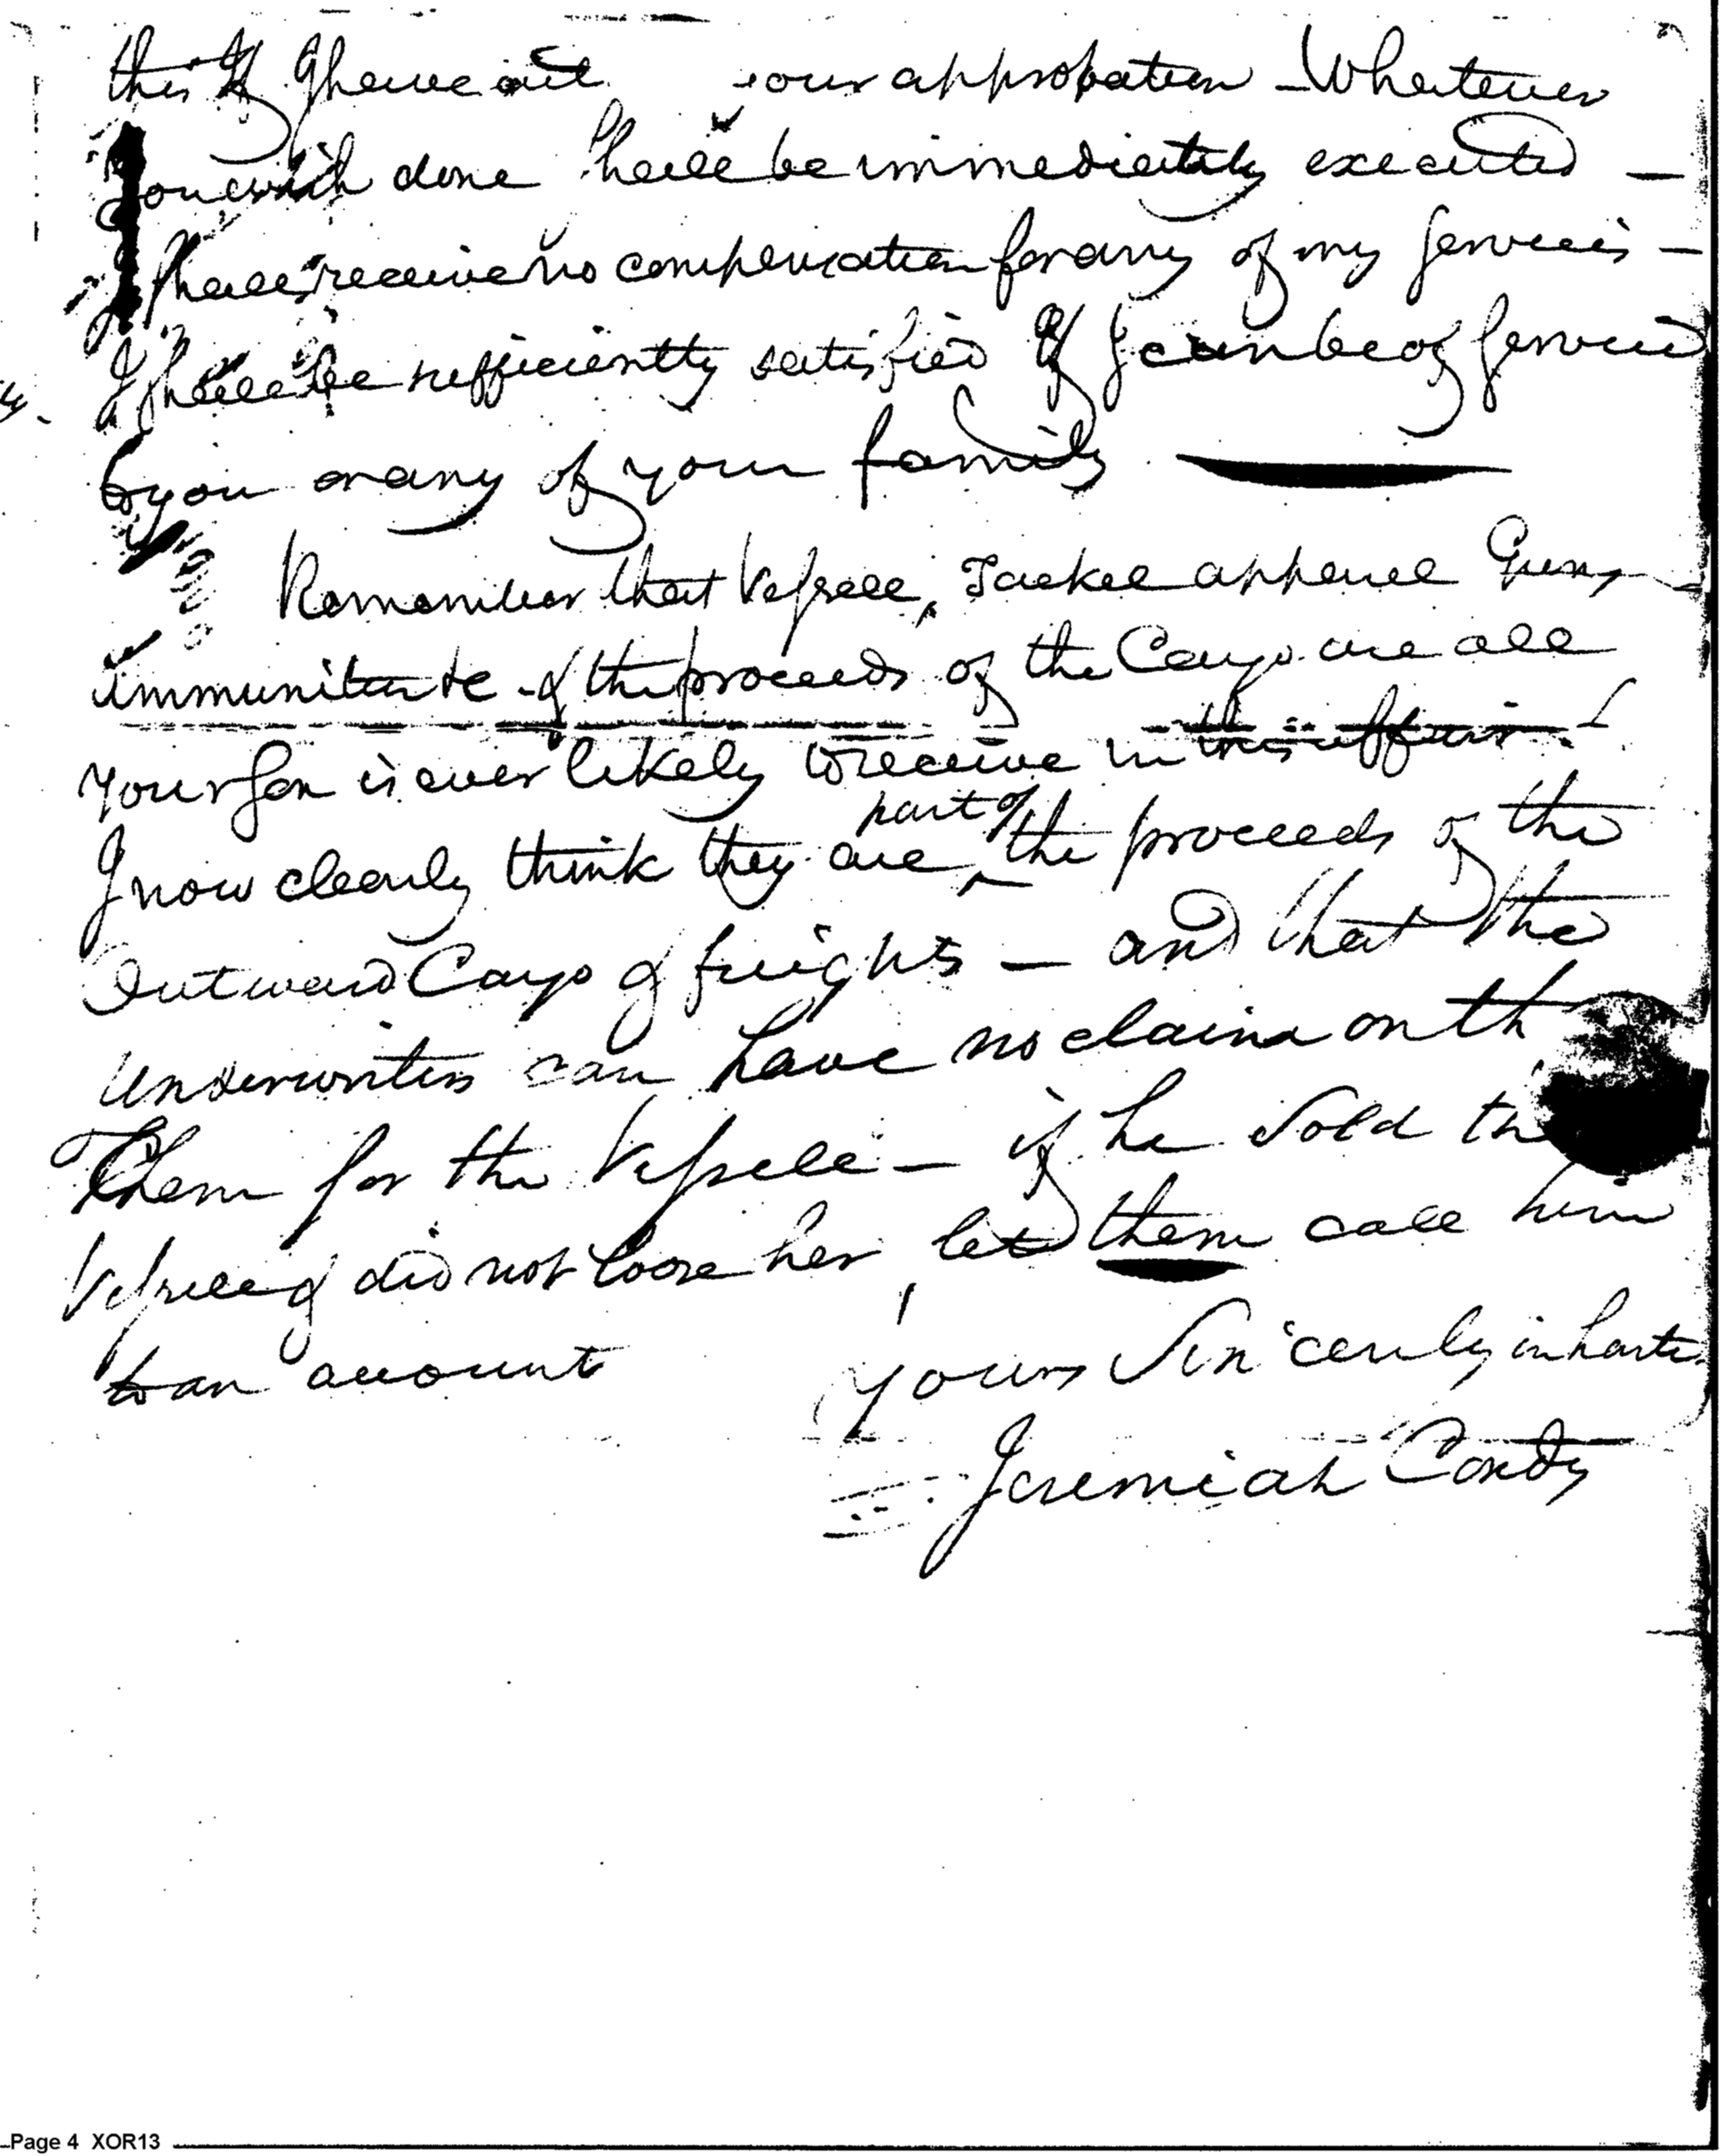 this If I have your approbation – Whatever
you wish done shall be immediately executed –
I shall receive no compensation for any of my services –
I shall be sufficiently satisfied If I can be of service
to you or any of your family
Remember that Vessell, Tackel apparel Guns
ammunition &c & the proceeds of the Cargo are all
your son is ever likely to receive in this affair
I now clearly think they are part of the proceeds of the
Outward Cargo & freights – and that the
Underwriters can have no claim on th
Them for the Vessell – if he sold the
Vessell & did not loose her, let them call him
to an account
yours Sincerely in haste
Jeremiah Condy
Page 4 XOR13